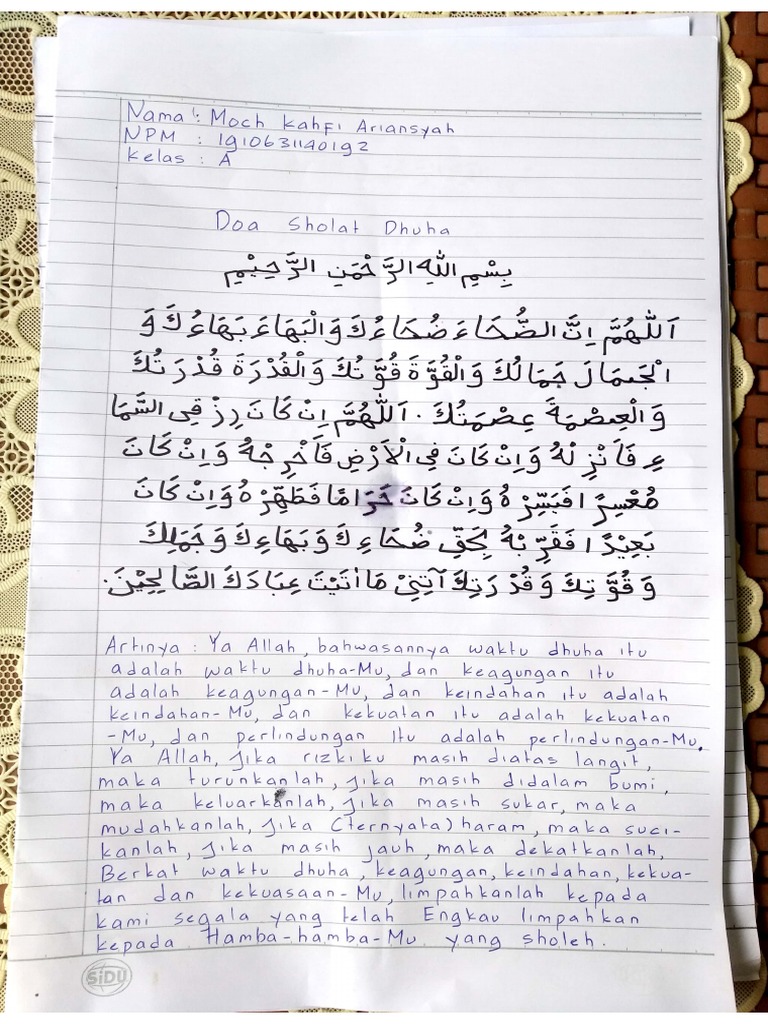 Nama : Moch Kahfi Ariansyah
NPM : 1910631140192
Kelas : A
Doa Sholat Dhuha
بِسْمِ اللهِ الرَّحْمَنِ الرَّحِيْمِ
اَللّٰهُمَّ اِنَّ الضُّحَاءَ ضُحَاءُكَ وَالْبَهَاءَ بَهَاءُكَ وَ
الْجَمَالَ جَمَالُكَ وَالْقُوَّةَ قُوَّتُكَ وَالْقُدْرَةَ قُدْرَتُكَ
وَالْعِصْمَةَ عِصْمَتُكَ. اَللّٰهُمَّ اِنْ كَانَ رِزْقِى السَّمَا
ءِ فَاَنْزِلْهُ وَاِنْ كَانَ فِى الْاَرْضِ فَاَخْرِجْهُ وَاِنْ كَانَ
مُعْسِرًا فَيَسِّرْهُ وَاِنْ كَانَ حَرَامًا فَطَهِّرْهُ وَاِنْ كَانَ
بَعِيْدًا فَقَرِّبْهُ بِحَقِّ ضُحَاءِكَ وَبَهَاءِكَ وَجَمَالِكَ
وَقُوَّتِكَ وَقُدْرَتِكَ آتِنِيْ مَااٰتَيْتَ عِبَادَكَ الصَّالِحِيْنَ.
Artinya : Ya Allah, bahwasannya waktu dhuha itu
adalah waktu dhuha-Mu, dan keagungan itu
adalah keagungan-Mu, dan keindahan itu adalah
keindahan-Mu, dan kekuatan itu adalah kekuatan
-Mu, dan perlindungan itu adalah perlindungan-Mu.
Ya Allah, jika rizkiku masih diatas langit,
maka turunkanlah, jika masih didalam bumi,
maka keluarkanlah, jika masih sukar, maka
mudahkanlah, jika (ternyata) haram, maka suci-
kanlah, jika masih jauh, maka dekatkanlah,
Berkat waktu dhuha, keagungan, keindahan, kekua-
tan dan kekuasaan-Mu, limpahkanlah kepada
kami segala yang telah Engkau limpahkan
kepada Hamba-hamba-Mu yang sholeh.
SiDU